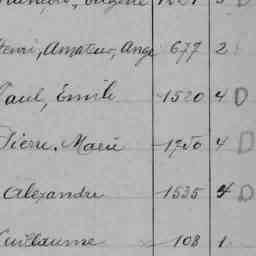 Henri, Amateur, Ange 677 2
Paul, Emile 1520 4 D
Pierre, Marie 1250 4 D
Alexandre 1535 4 D
Guillaume 108 1